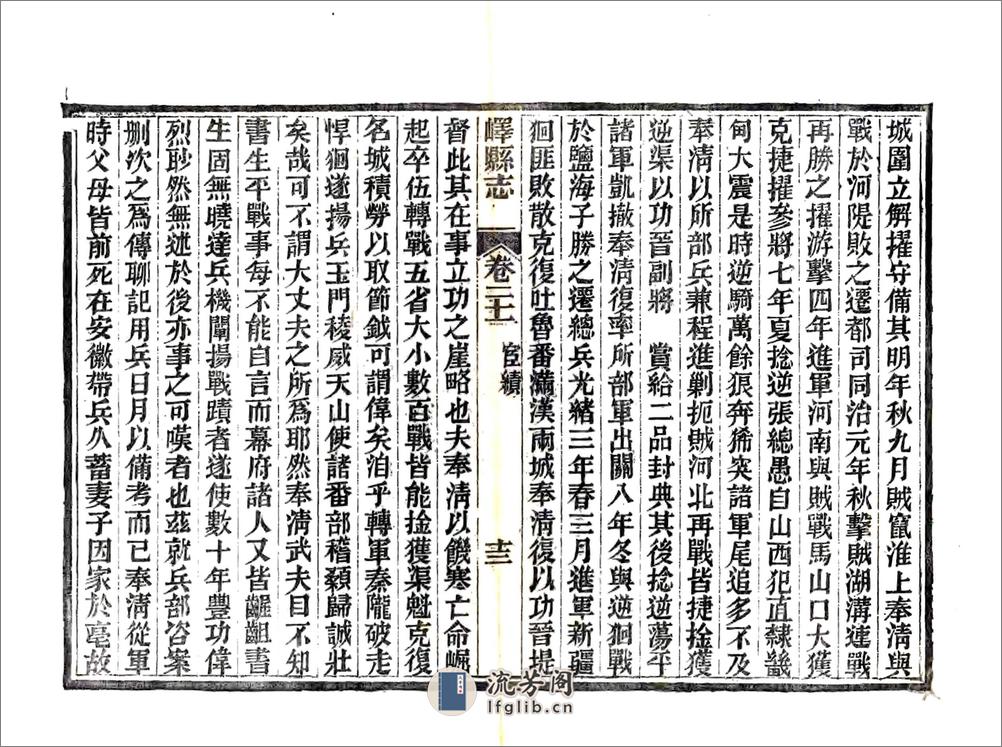 城圍立解擢守備其明年秋九月賊竄淮上奉清與
戰於河隄敗之遷都司同治元年秋擊賊湖溝連戰
再勝之擢游擊四年進軍河南與賊戰馬山口大獲
克捷擢參將七年夏捻逆張總愚自山西犯直隸畿
甸大震是時逆騎萬餘狼奔狶突諸軍尾追多不及
奉清以所部兵兼程進剿扼賊河北再戰皆捷擒獲
逆渠以功晉副將 賞給二品封典其後捻逆蕩平
諸軍凱撤奉清復率所部軍出關八年冬與逆㢠戰
於鹽海子勝之遷總兵光緒三年春三月進軍新疆
㢠匪敗散克復吐魯番滿漢兩城奉清復以功晉提
嶧縣志 卷二十一 宦績 十三
督此其在事立功之崖略也夫奉清以饑寒亡命崛
起卒伍轉戰五省大小數百戰皆能擒獲渠魁克復
名城積勞以取節鉞可謂偉矣洎乎轉軍秦隴破走
悍㢠遂揚兵玉門稜威天山使諸番部稽顙歸誠壯
矣哉可不謂大丈夫之所爲耶然奉清武夫目不知
書生平戰事每不能自言而幕府諸人又皆齷齟書
生固無曉達兵機闡揚戰蹟者遂使數十年豐功偉
烈眇然無述於後亦事之可嘆者也茲就兵部咨案
刪次之爲傳聊記用兵日月以備考而已奉清從軍
時父母皆前死在安徽帶兵久蓄妻子因家於亳故
流芳閣
lfglib.cn